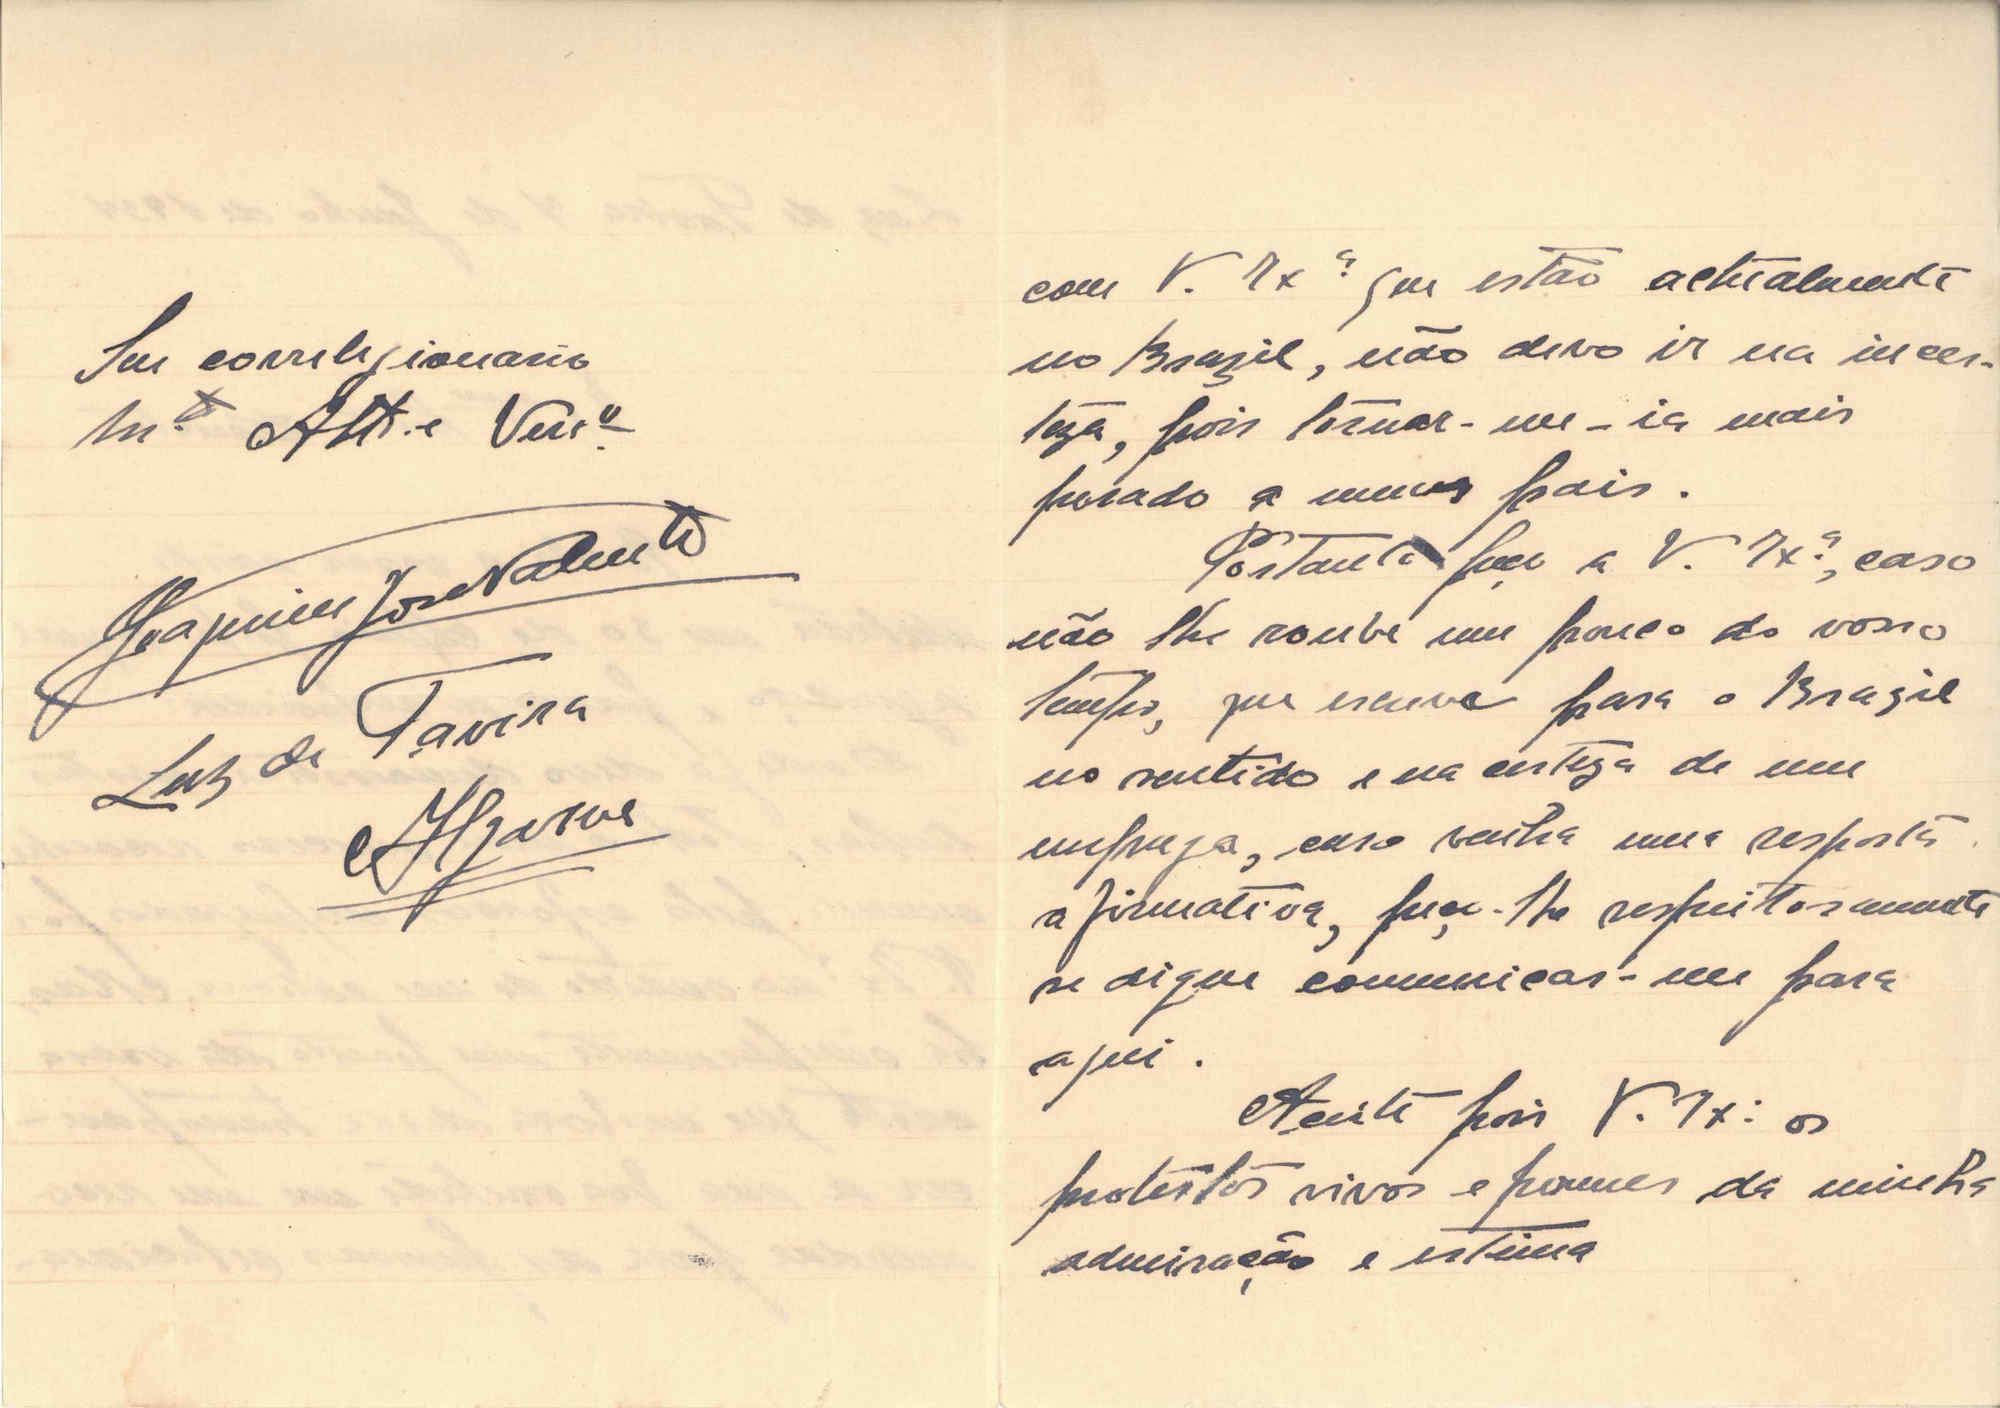 com V. Exª que estão actualmente
no Brazil, não devo ir na incer-
teza, pois tornar-me-ia mais
pesado a meus pais.
Portanto peço a V. Exª, caso
não lhe roube um pouco do vosso
tempo, que escreva para o Brazil
no sentido e na certeza de um
emprego, caso venha uma resposta
afirmativa, peço-lhe respeitosamente
se digne comunicar-me para
aqui.
Aceite pois V. Ex: os
protestos vivos e perenes da minha
admiração e estima
Seu correlegionario
Mtº Attº e Venº
Joaquim José
Luz de Tavira
Algarve